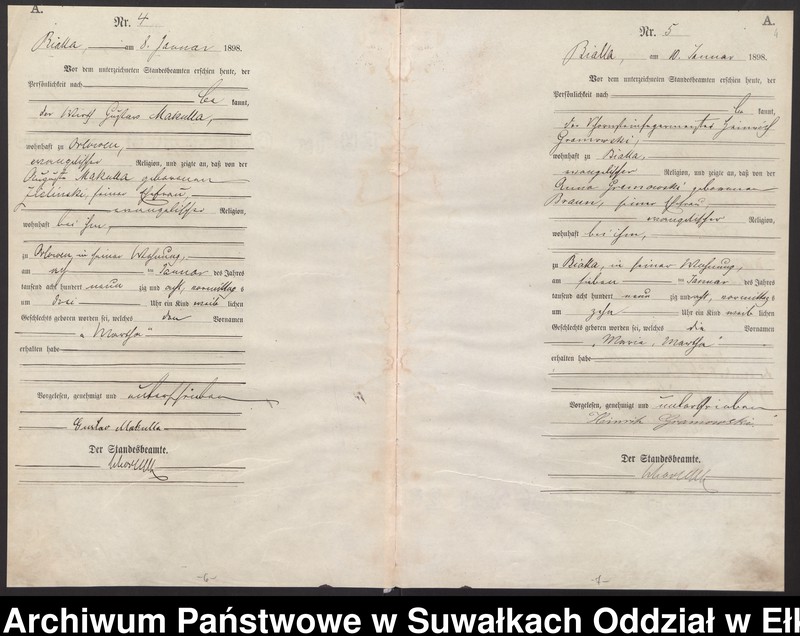 A.
Nr. 4
Bialla, am 8. Januar 1898.
Vor dem unterzeichneten Standesbeamten erschien heute, der
Persönlichkeit nach
be kannt,
der Wirth Gustav Makulla,
wohnhaft zu Orlowen,
evangelischer Religion, und zeigte an, daß von der
Auguste Makulla geborenen
Zielinski, seiner Ehefrau,
evangelischer Religion,
wohnhaft bei ihm,
zu Orlowen, in seiner Wohnung,
am Januar des Jahres
tausend acht hundert neun zig und acht, vormittag s
um drei Uhr ein Kind weib lichen
Geschlechts geboren worden sei, welches den Vornamen
„Martha"
erhalten habe
Vorgelesen, genehmigt und unterschrieben
Gustav Makulla
Der Standesbeamte.
-6-
A.
4
Nr. 5
Bialla, am 10. Januar 1898.
Vor dem unterzeichneten Standesbeamten erschien heute, der
Persönlichkeit nach
be kannt,
der Schornsteinfegermeister Heinrich
Gramowski,
wohnhaft zu Bialla,
evangelischer Religion, und zeigte an, daß von der
Anna Gramowski geborenen
Braun, seiner Ehefrau,
evangelischer Religion,
wohnhaft bei ihm,
zu Bialla, in seiner Wohnung,
am sieben Januar des Jahres
tausend acht hundert neun zig und acht, vormittag s
um zehn Uhr ein Kind weib lichen
Geschlechts geboren worden sei, welches die Vornamen
„Maria, Martha"
erhalten habe
Vorgelesen, genehmigt und unterschrieben
Heinrich Gramowski
Der Standesbeamte.
-7-
Archiwum Państwowe w Suwałkach Oddział w Ełk